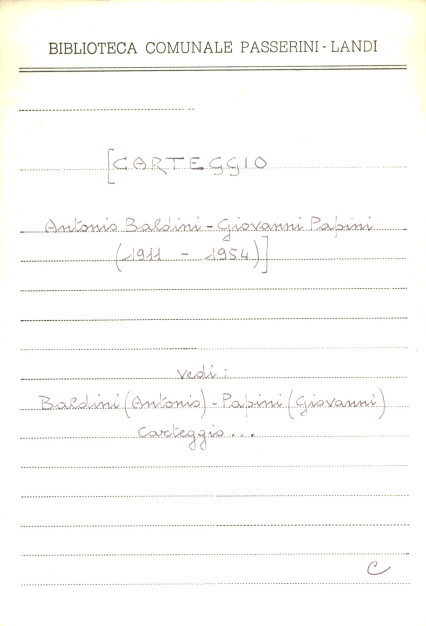 BIBLIOTECA COMUNALE PASSERINI - LANDI
[CARTEGGIO
Antonio Baldini - Giovanni Papini
(1911 - 1954)]
vedi:
Baldini (Antonio) - Papini (Giovanni)
Carteggio...
C